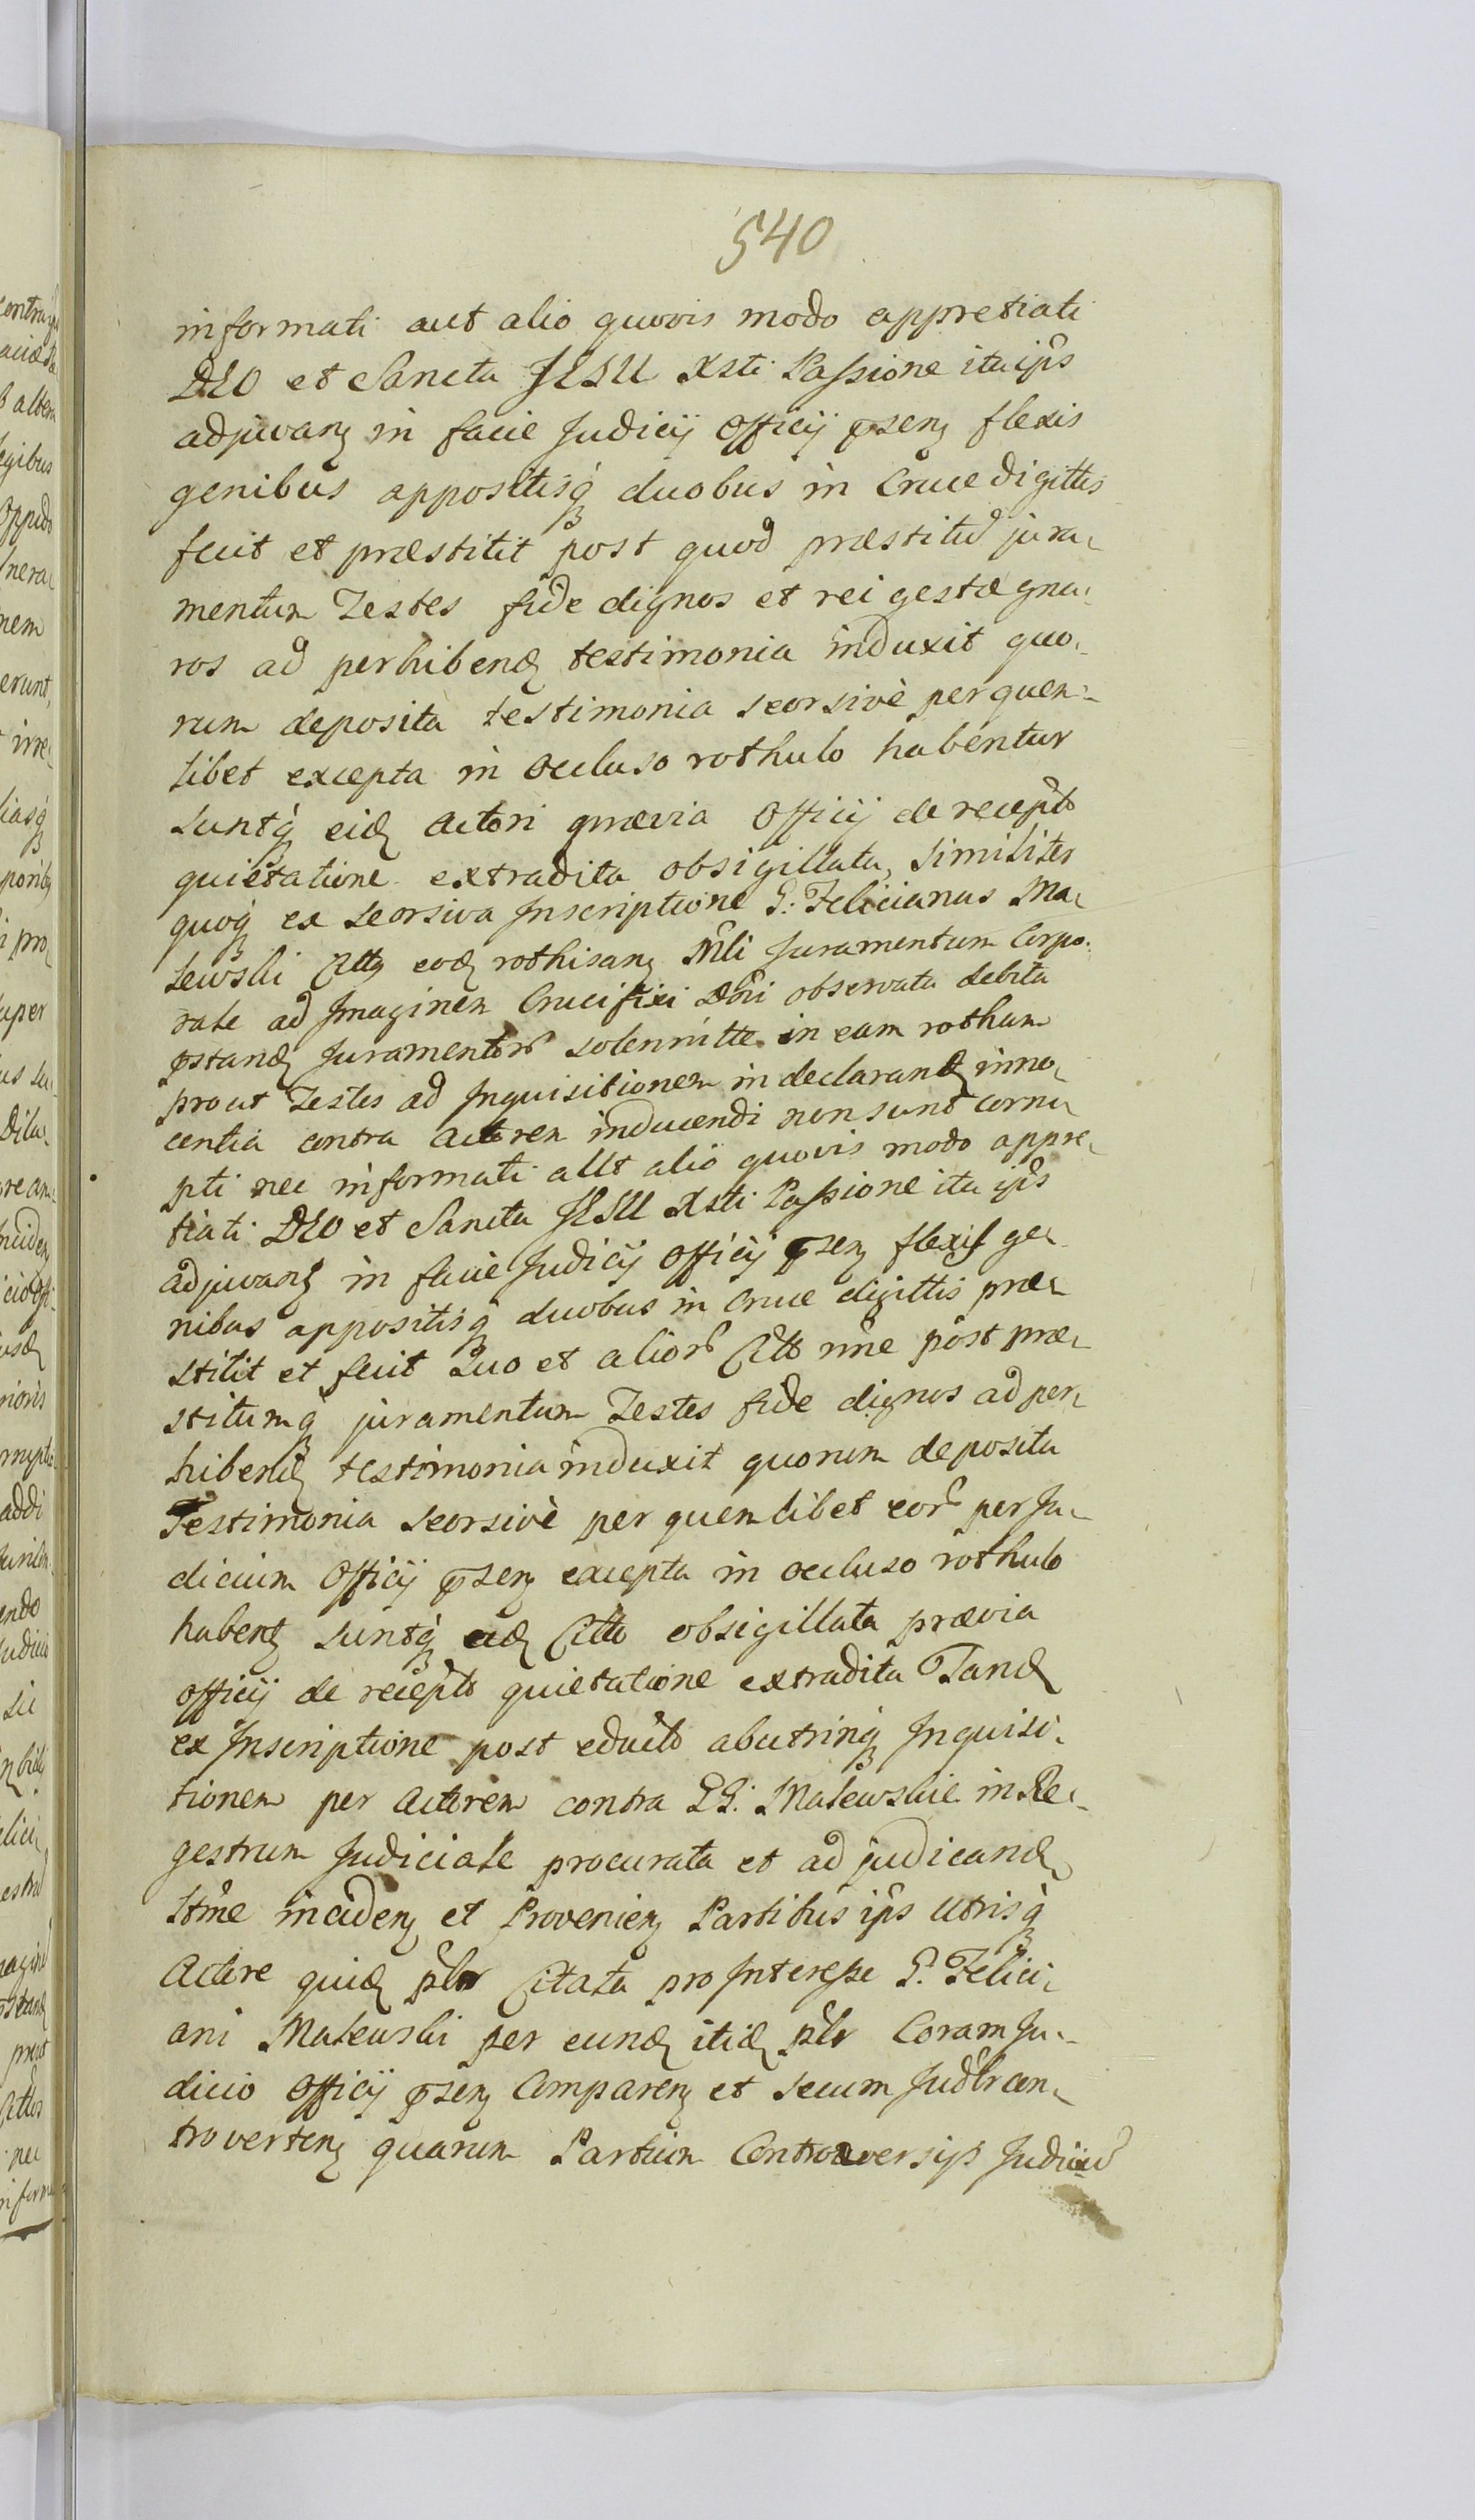 540
informati aut alio quovis modo appretiati
DEO et Sancta JESU Xsti Passione ita ips
adjuvanʒ in facie Judicij Officij pnsenʒ flexis
genibus appositisq́ duobus in Cruce digittis
fecit et præstitit post quod præstitū jura-
mentum Testes fide dignos et rei gestæ gna-
ros ad perhibenʒ testimonia induxit quo-
rum deposita testimonia seorsivè per quem-
libet excepta in occluso rothulo habentur
suntq́ eidʒ Actori prævia Officij de recepto
quietatione extradita obsigillata, Similiter
quoq́ ex seorsiva Inscriptione G: Felicianus Ma-
lewski Cittʒ eodʒ rothisanʒ Mli Juramentum Corpo-
rale ad Imaginem Crucifixi Dni observata debita
pstandʒ Juramentor solennitte in eam rotham
prout Testes ad Inquisitionem in declarandʒ inno-
centia contra Actorem inducendi non sunt corru-
pti nec informati allt alio quovis modo appre-
tiati DEO et Sancta JESU Xsti Passione ita ips
adjuvanʒ in facie Judicij Officij pnsenʒ flexis ge-
nibus appositisq́ duobus in Cruce digittis præ-
stitit et fecit Suo et alior Citt nne post præ-
stitumq́ juramentum Testes fide dignos ad per-
hibendʒ testimonia induxit quorum deposita
Testimonia seorsivè per quemlibet eor per Ju-
dicium Officij pnsenʒ excepta in occluso rothulo
habentʒ suntq́ eidʒ Citto obsigillata prævia
officij de recepto quietatione extradita Tandʒ
ex Inscriptione post educto abutrinq́ Inquisi-
tionem per Actorem contra GG. Malewskie in Re-
gestrum Judiciale procurata et ad judicandʒ
Itme incidenʒ et Provenienʒ Partibus ips Utrisq́
Actore quidʒ plr Citata pro Interesse G. Felici-
ani Malewski per eundʒ itidʒ plr Coram Ju-
dicio Officij pnsenʒ Comparenʒ et secum Judlr con-
trovertenʒ quarum Partium Controversijs Judiciū